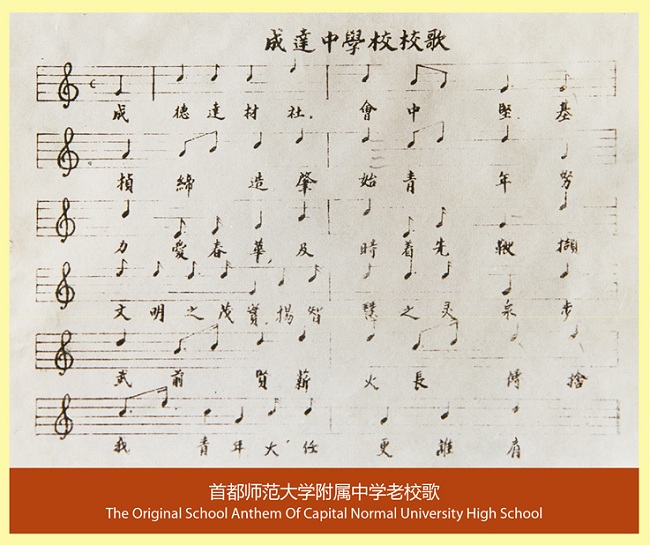 成達中學校校歌
成 德 達 材 社. 會 中 堅. 基
楨 締 造 肇 始 青 年 努
力 愛 春 華, 及 時 着 先 鞭 擷
文 明 之 茂 實, 揚 智 慧 之 灵 泉 步
武 前 賢 薪 火 長 傳 捨
我 青 年 大 任 更 誰 肩
首都师范大学附属中学老校歌
The Original School Anthem Of Capital Normal University High School